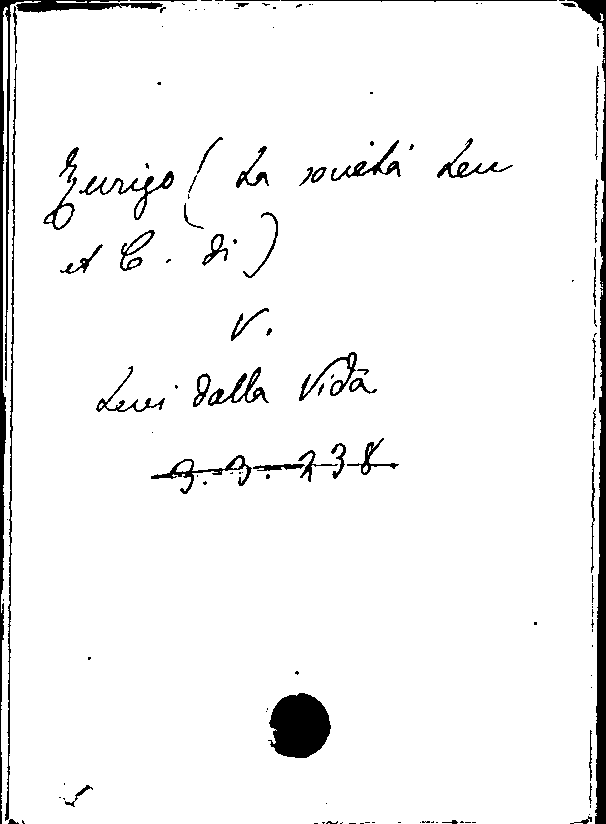 Zurigo (La società Leu
et C. di)
V.
Levi dalla Vida
3.3.238